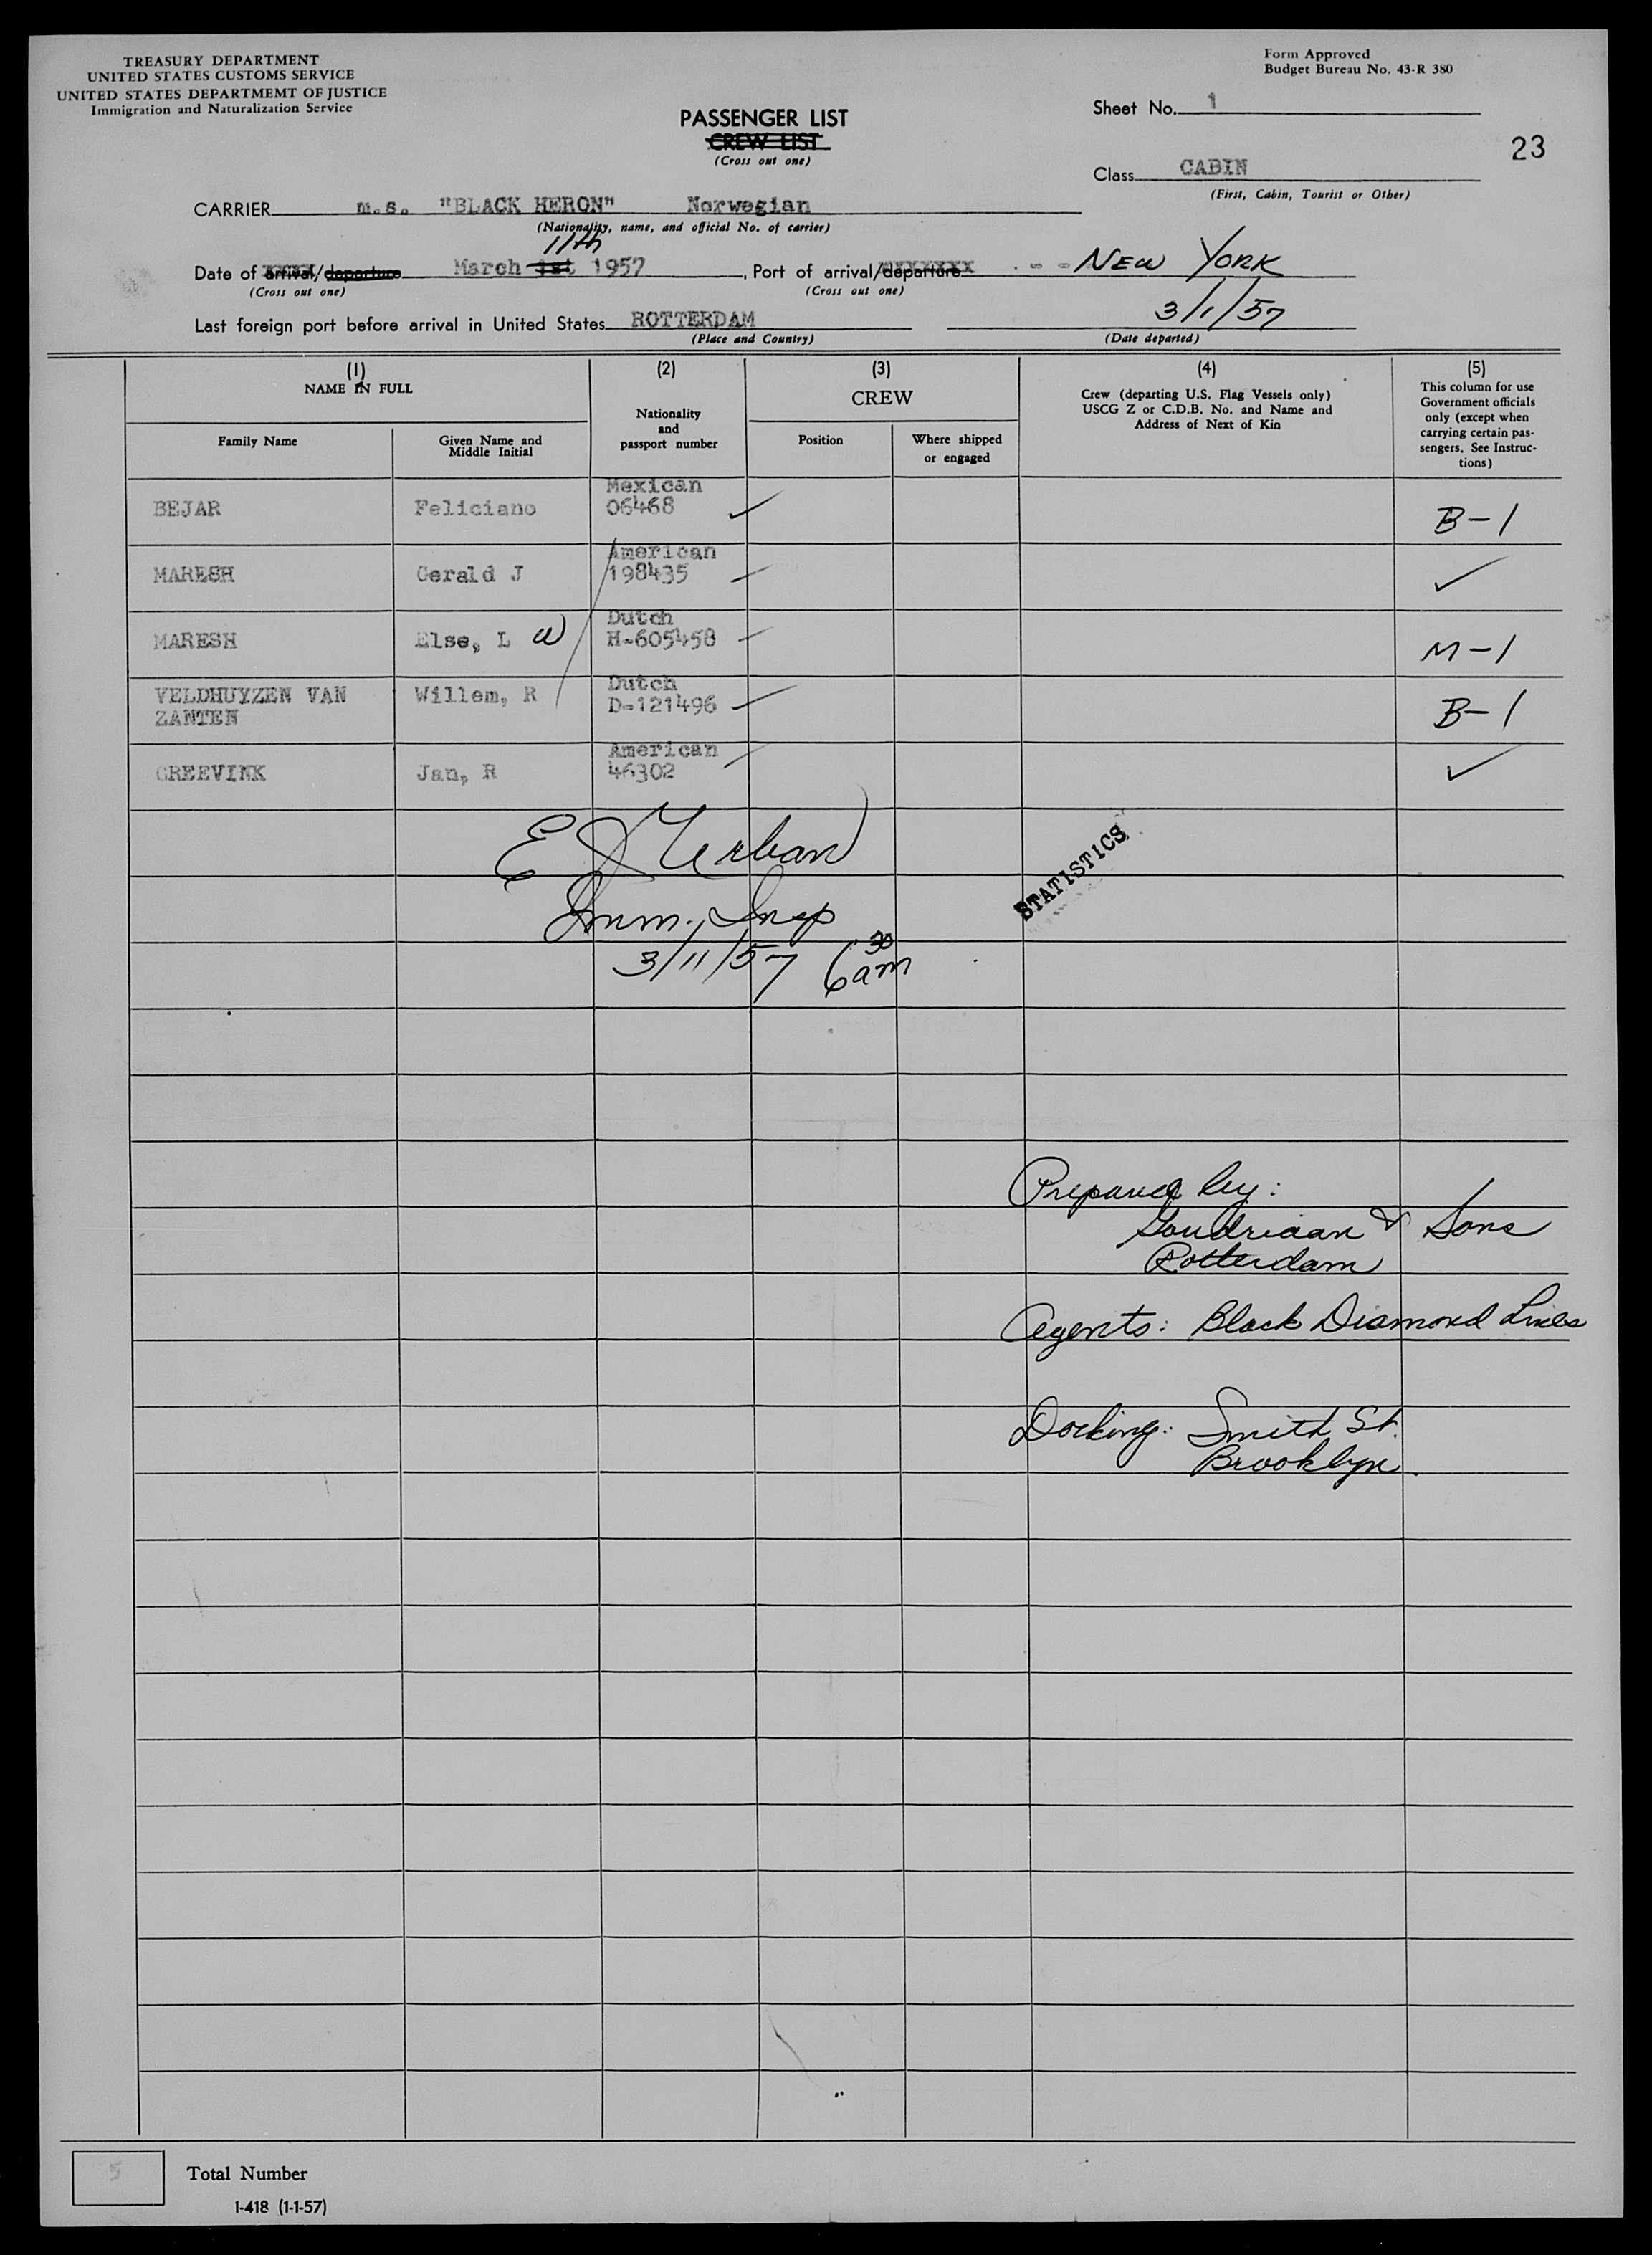 TREASURY DEPARTMENT
UNITED STATES CUSTOMS SERVICE
UNITED STATES DEPARTMEMT OF JUSTICE
Immigration and Naturalization Service
Form Approved
Budget Bureau No. 43-R 380
PASSENGER LIST
CREW LIST
(Cross out one)
Sheet No. 1
23
Class CABIN
(First, Cabin, Tourist or Other)
CARRIER m.s. "BLACK HERON" Norwegian
(Nationality, name, and official No. of carrier)
11th
Date of arrival/departure March 1st 1957, Port of arrival/departure NEW YORK
(Cross out one) (Cross out one)
Last foreign port before arrival in United States ROTTERDAM 3/1/57
(Place and Country) (Date departed)
(1)
NAME IN FULL
Family Name
Given Name and
Middle Initial
(2)
Nationality
and
passport number
(3)
CREW
Position
Where shipped
or engaged
(4)
Crew (departing U.S. Flag Vessels only)
USCG Z or C.D.B. No. and Name and
Address of Next of Kin
(5)
This column for use
Government officials
only (except when
carrying certain pas-
sengers. See Instruc-
tions)
Mexican
BEJAR Feliciano 06468 B-1
American
MARESH Gerald J 198435
Dutch
MARESH Else, L W H-605458 M-1
Dutch
VELDHUYZEN VAN Willem, R D-121496 B-1
ZANTEN
American
GREEVINK Jan, R 46302
E J Urban
Imm. Insp
3/11/57 6 30 am
STATISTICS
Prepared by:
Goudriaan & Sons
Rotterdam
Agents: Black Diamond Lines
Docking: Smith St.
Brooklyn
5 Total Number
1-418 (1-1-57)